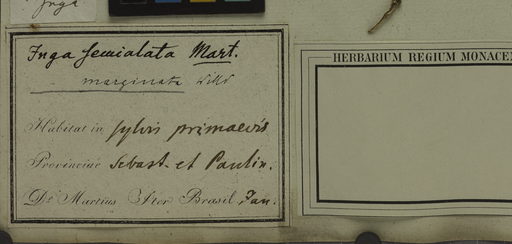 Inga
Inga semialata Mart.
marginata Willd
Habitat in sylvis primaevis
Provinciae Sebast. et Paulin.
Dr. Martius Iter Brasil. Jan.
HERBARIUM REGIUM MONACEN